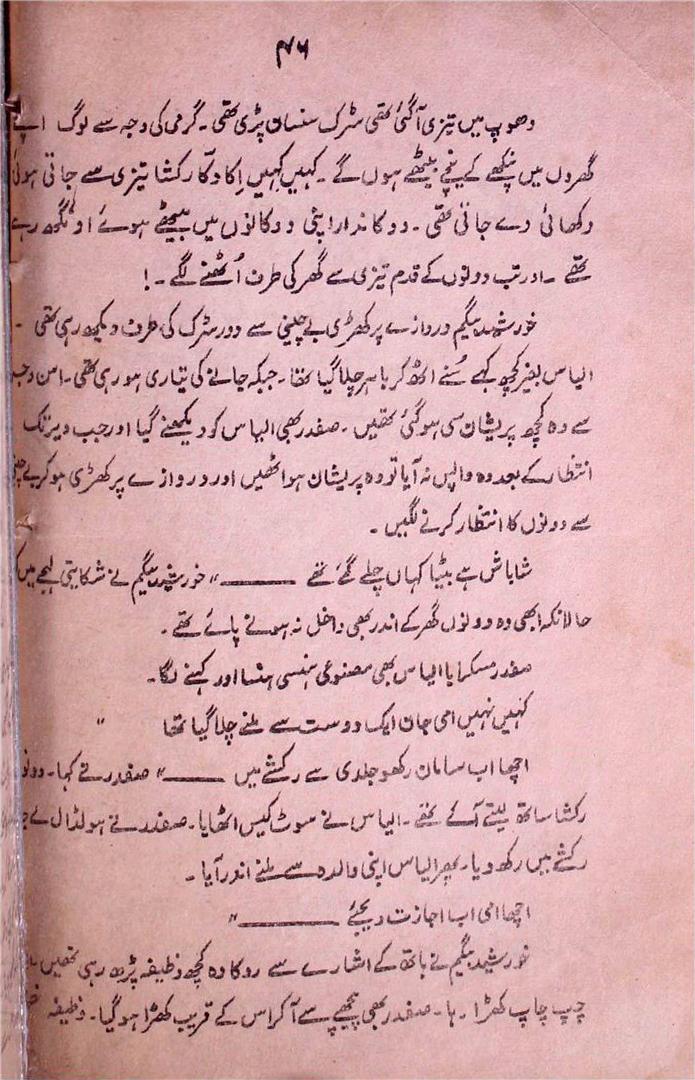 ۴۶
دھوپ میں تیزی آگئی تھی سڑک سنسان پڑی تھی۔ گرمی کی وجہ سے لوگ اپنے
گھروں میں پنکھے کے نیچے بیٹھے ہوں گے۔ کہیں کہیں اِکا دکّا رکشا تیزی سے جاتی ہوئی
دکھائی دے جاتی تھی۔ دوکاندار اپنی دوکانوں میں بیٹھے ہوئے اونگھ رہے
تھے۔ اور تب دونوں کے قدم تیزی سے گھر کی طرف اُٹھنے لگے۔!
خورشید بیگم دروازے پر کھڑی بے چینی سے دور سڑک کی طرف دیکھ رہی تھی۔
الیاس بغیر کچھ کہے سُنے اٹھ کر باہر چلا گیا تھا۔ جبکہ جانے کی تیاری ہو رہی تھی۔ اس وجہ
سے وہ کچھ پریشان سی ہوگئی تھیں۔ صفدر بھی الیاس کو دیکھنے گیا اور جب دیر تک
انتظار کے بعد وہ واپس نہ آیا تو وہ پریشان ہو اٹھیں اور دروازے پر کھڑی ہو کر بے چینی
سے دونوں کا انتظار کرنے لگیں۔
شاباش ہے بیٹا کہاں چلے گئے تھے ـــــــ" خورشید بیگم نے شکایتی لہجے میں
حالانکہ ابھی وہ دونوں گھر کے اندر بھی داخل نہ ہونے پائے تھے۔
صفدر مسکرایا الیاس بھی مصنوعی ہنسی ہنسا اور کہنے لگا۔
کہیں نہیں امی جان ایک دوست سے ملنے چلا گیا تھا "
اچھا اب سامان رکھو جلدی سے رکشے میں ـــــــ" صفدر نے کہا۔
رکشا ساتھ لیتے آئے تھے۔ الیاس نے سوٹ کیس اٹھایا۔ صفدر نے ہولڈال لے
رکشے میں رکھ دیا۔ پھر الیاس اپنی والدہ سے ملنے اندر آیا۔
اچھا امی اب اجازت دیجئے ـــــــ"
خورشید بیگم نے ہاتھ کے اشارے سے روکا وہ کچھ وظیفہ پڑھ رہی تھیں۔
چپ چاپ کھڑا رہا۔ صفدر بھی پیچھے سے آکر اس کے قریب کھڑا ہوگیا۔ وظیفہ